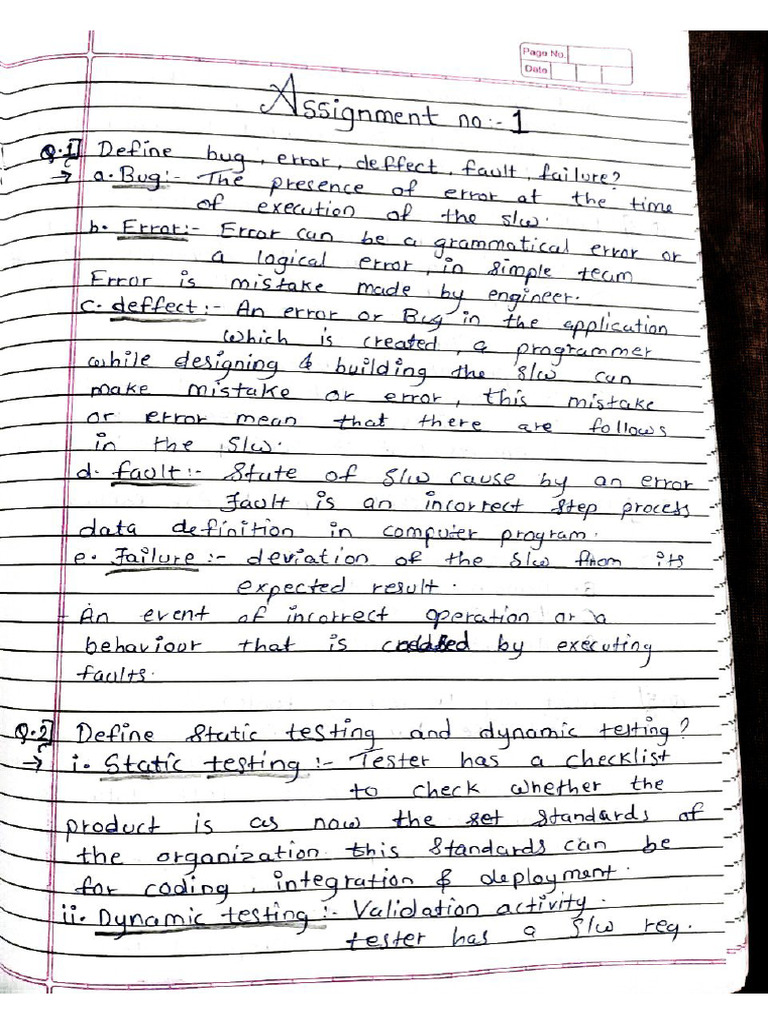 Page No.
Date
Assignment no:- 1
Q.1] Define bug, error, deffect, fault, failure?
→ a. Bug:- The presence of error at the time
of execution of the s/w.
b. Error:- Error can be a grammatical error or
a logical error, in simple team
Error is mistake made by engineer.
c. deffect:- An error or Bug in the application
which is created, a programmer
while designing & building the s/w can
make mistake or error, this mistake
or error mean that there are follows
in the s/w.
d. fault:- State of s/w cause by an error
Fault is an incorrect step process
data definition in computer program.
e. Failure:- deviation of the s/w from its
expected result.
- An event of incorrect operation or a
behaviour that is by executing
faults.
Q.2] Define static testing and dynamic testing?
→ i. Static testing:- Tester has a checklist
to check whether the
product is as now the set standards of
the organization this standards can be
for coding, integration & deployment.
ii. Dynamic testing:- Validation activity.
tester has a s/w req.